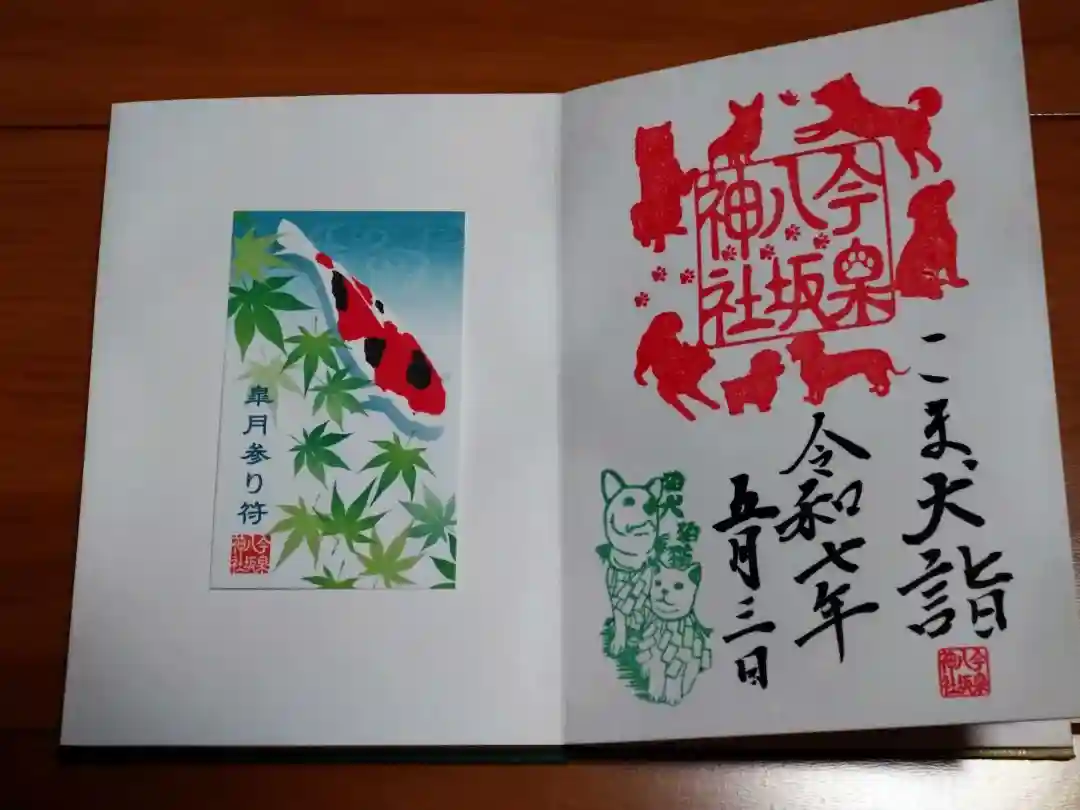 皐月参り符
今泉
八坂
神社
今泉
八坂
神社
こま犬詣
今泉
八坂
神社
令和七年
五月三日